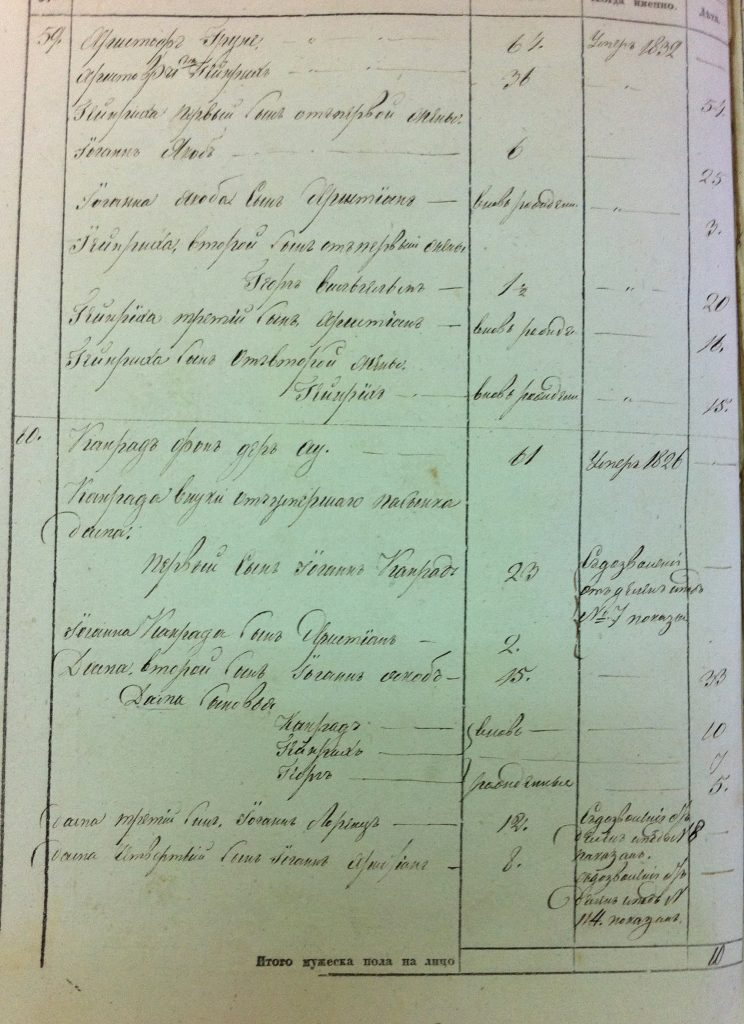 когда именно. Лѣта.
59. Христофъ Груне. " 64. Умеръ 1832
Христофа сынъ Гейнрихъ 36 " 54.
Гейнриха первый сынъ отъ первой жены.
Іоганнъ Якобъ 6 25
Іоганна Якоба сынъ Христіанъ — вновь рожден. " 3.
Гейнриха, второй сынъ отъ первый жены
Георгъ Вильгельмъ — 1½ " 20
Гейнриха третій сынъ Христіанъ — вновь рожд. 16.
Гейнриха сынъ отъ второй жены.
Гейнрихъ вновь рожден. " 15.
60. Канрадъ фонъ деръ Ау. 61 Умеръ 1826
Канрада внуки отъ умершаго пасынка
Даспа:
первый сынъ Іоганнъ Канрадъ 23 Съ дозволенія отъделенъ и подъ № 7 показан
Іоганна Канрада сынъ Христіанъ — 2.
Даспа, второй сынъ Іоганнъ Якобъ — 15. 33
Даспа сыновья
Канрадъ вновь 10
Гейнрихъ 7
Георгъ рожденные 5.
Даспа третій сынъ, Іоганнъ Лоренцъ 12. Съ дозволенія
и подъ № 8
показанъ.
Даспа четвертый сынъ Іоганнъ Христіанъ 8. Съ дозволенія
и подъ №
114. показанъ.
Итого мужеска пола на лицо 10